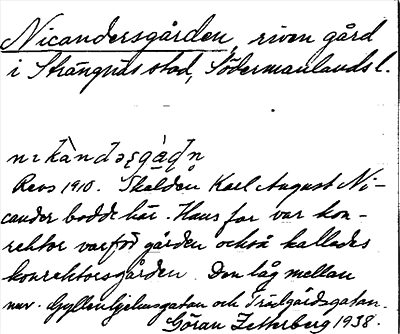 Nicandersgården, riven gård
i Strängnäs stad, Södermanlands l.
nɪkàndəʂgà̤ɖn
Revs 1910. Skalden Karl August Ni-
cander bodde här. Hans far var kon-
rektor varför gården också kallades
konrektorsgården. Den låg mellan
nuv. Gyllenhjelmsgatan och Trädgårdsgatan.
Göran Zetterberg 1938.